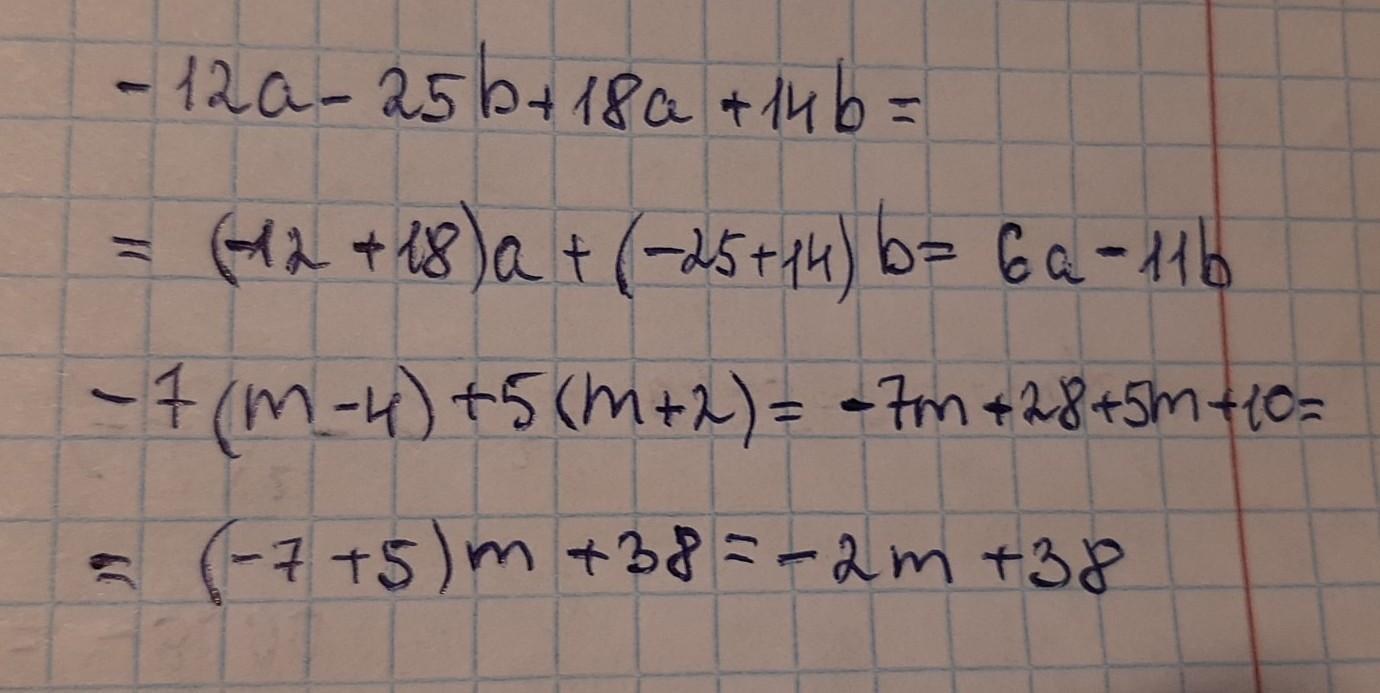 -12a-25b+18a+14b=
= (-12+18)a+(-25+14)b= 6a-11b
-7(m-4)+5(m+2)= -7m+28+5m+10=
= (-7+5)m+38=-2m+38